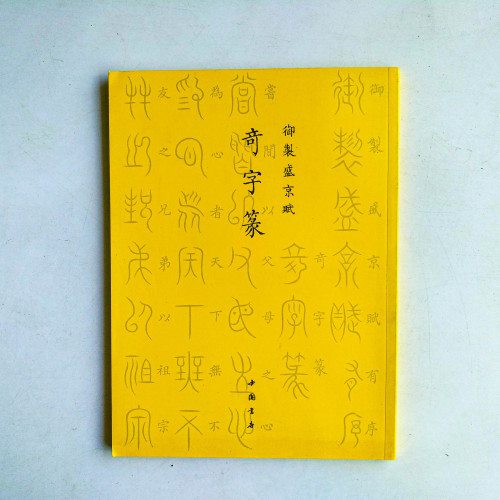 御製盛京賦
奇字篆
中国书店
御製盛京賦有序
奇字篆
嘗聞以父母之心
為心者天下無不
友之兄弟以祖宗